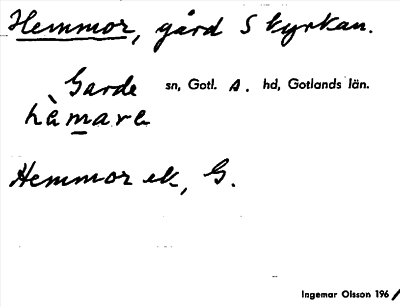 Hemmor, gård S kyrkan.
Garde sn, Gotl. A. hd, Gotlands län.
hàmara
Hemmor ek, G.
Ingemar Olsson 196/